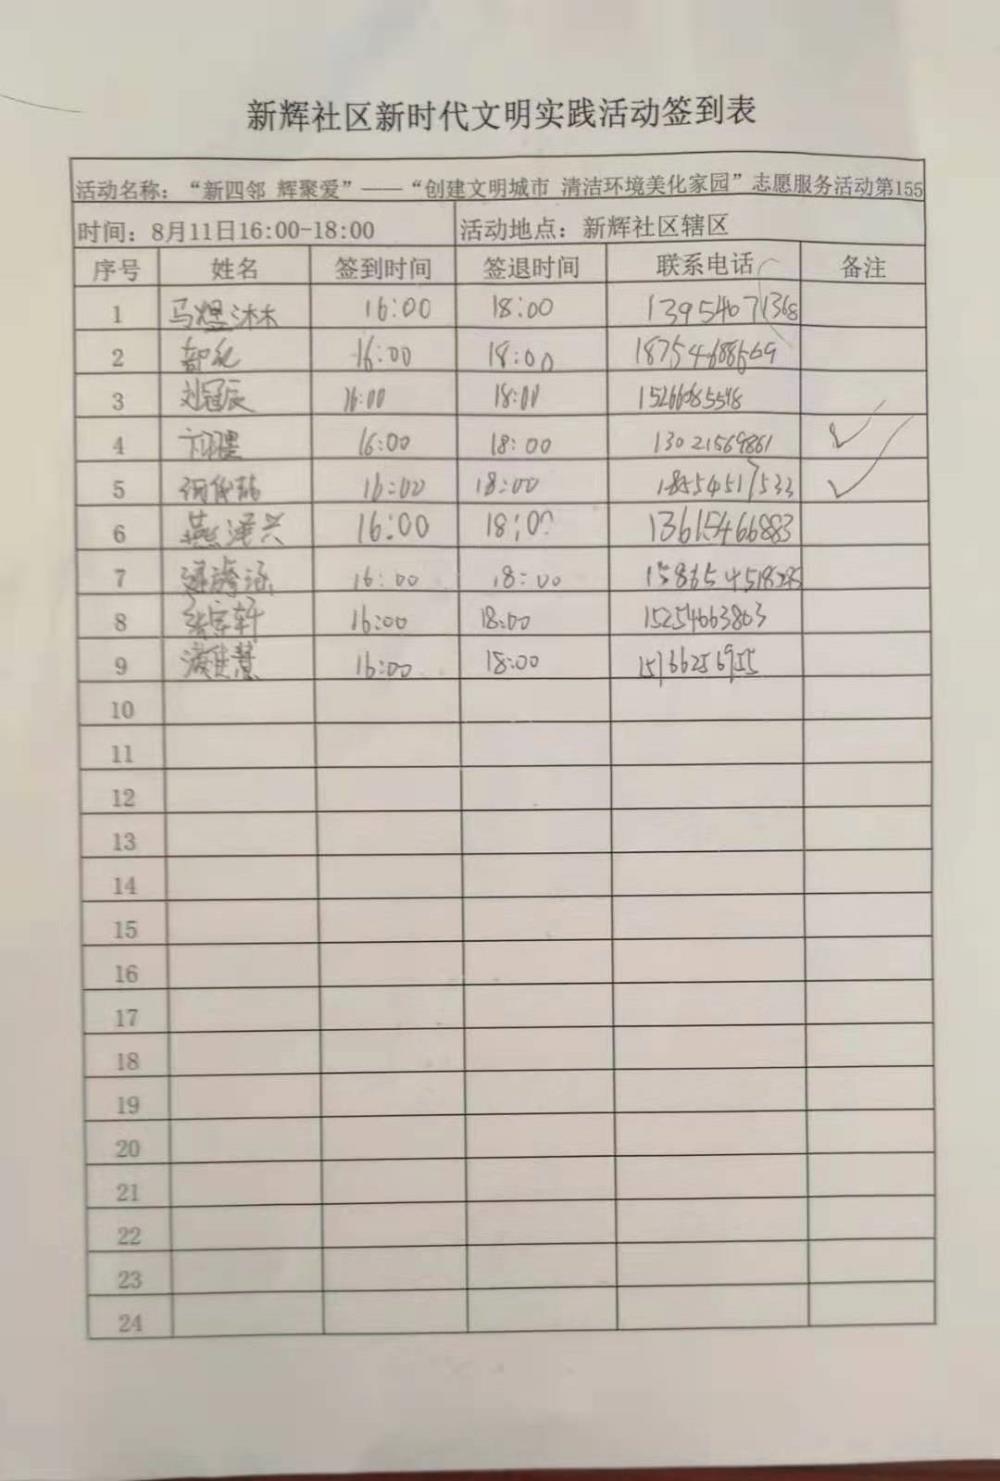 新辉社区新时代文明实践活动签到表
活动名称：“新四邻 辉聚爱”——“创建文明城市 清洁环境美化家园”志愿服务活动第155
时间：8月11日16:00-18:00 活动地点：新辉社区辖区
序号 姓名 签到时间 签退时间 联系电话 备注
1 马煜沐 16:00 18:00 13954671368
2 16:00 18:00 18754688669
3 刘冠辰 16:00 18:00 15266085548
4 16:00 18:00 13021569861 ✓
5 16:00 18:00 18554517533 ✓
6 燕泽兴 16:00 18:00 13615466883
7 16:00 18:00
8 张宗轩 16:00 18:00 15254663863
9 16:00 18:00 15166256955
10
11
12
13
14
15
16
17
18
19
20
21
22
23
24